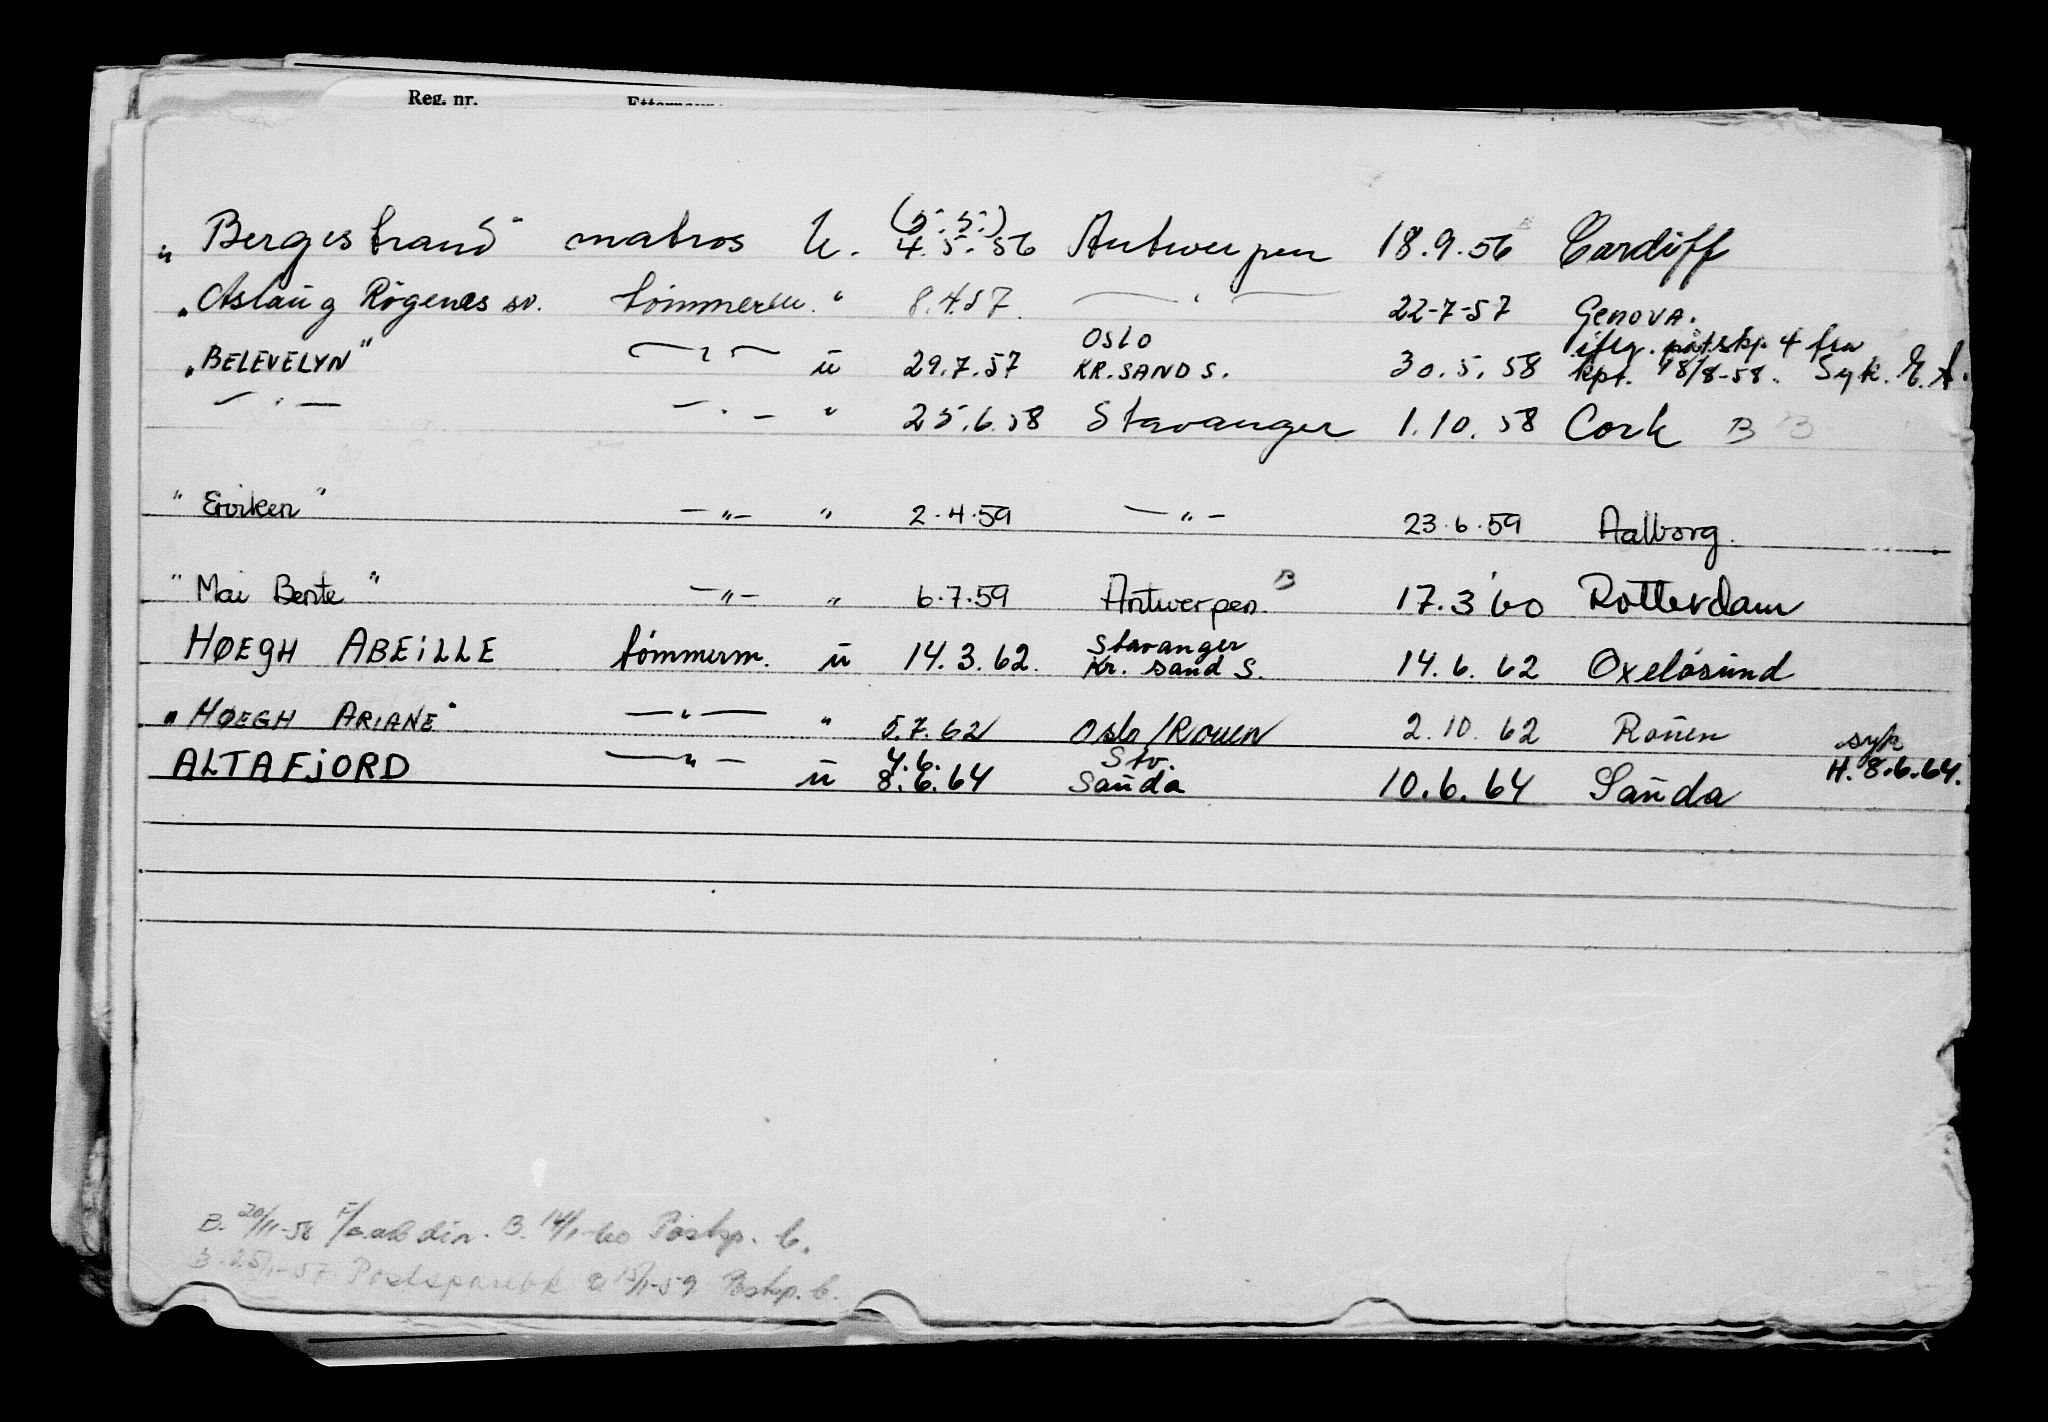 Reg. nr. Etternavn
(5. 5.)
„Bergestrand" matros U. 4. 5. 56 Antwerpen 18.9.56 Cardiff
„Aslaug Rögenæs sv. tömmerm. " 8.4.57. — " — 22-7-57 Genova.
OSLO iflg. påt.skp. 4 fra
„BELEVELYN" — " — u 29.7.57 KR.SAND S. 30.5.58 kpt. 18/8-58. Syk.
— " — — " — " 25.6.58 Stavanger 1.10.58 Cork B B
"Erviken" — " — " 2.4.59 — " — 23.6.59 Aalborg.
"Mai Bente" — " — " 6.7.59 Antwerpen. B 17.3 60 Rotterdam
Stavanger
HØEGH ABEiLLE tömmerm. u 14.3.62. Kr. sand S. 14.6.62 Oxelösund
"HØEGH ARIANE" — " — " 5.7.62 Oslo/Rouen 2.10.62 Rouen
4.6. Stv. syk
ALTAFJORD — " — u 8.6.64 Sauda 10.6.64 Sauda H. 8.6.64.
B. 20/11-58 dir. B. 14/1-60 Postsp. b.
B. 25/1-57 Postsparebk B 15/1-59 Postsp. b.